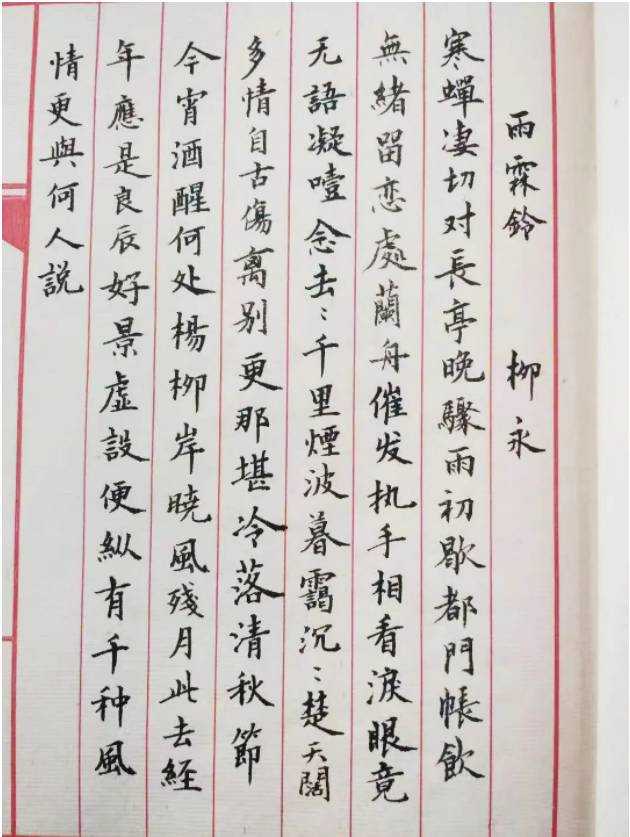 雨霖鈴 柳永
寒蟬凄切对長亭晚驟雨初歇都門帳飲
無緒留恋處蘭舟催发执手相看淚眼竟
无語凝噎念去〻千里煙波暮靄沉〻楚天闊
多情自古傷离别更那堪冷落清秋節
今宵酒醒何处楊柳岸曉風殘月此去経
年應是良辰好景虛設便縱有千种風
情更與何人説